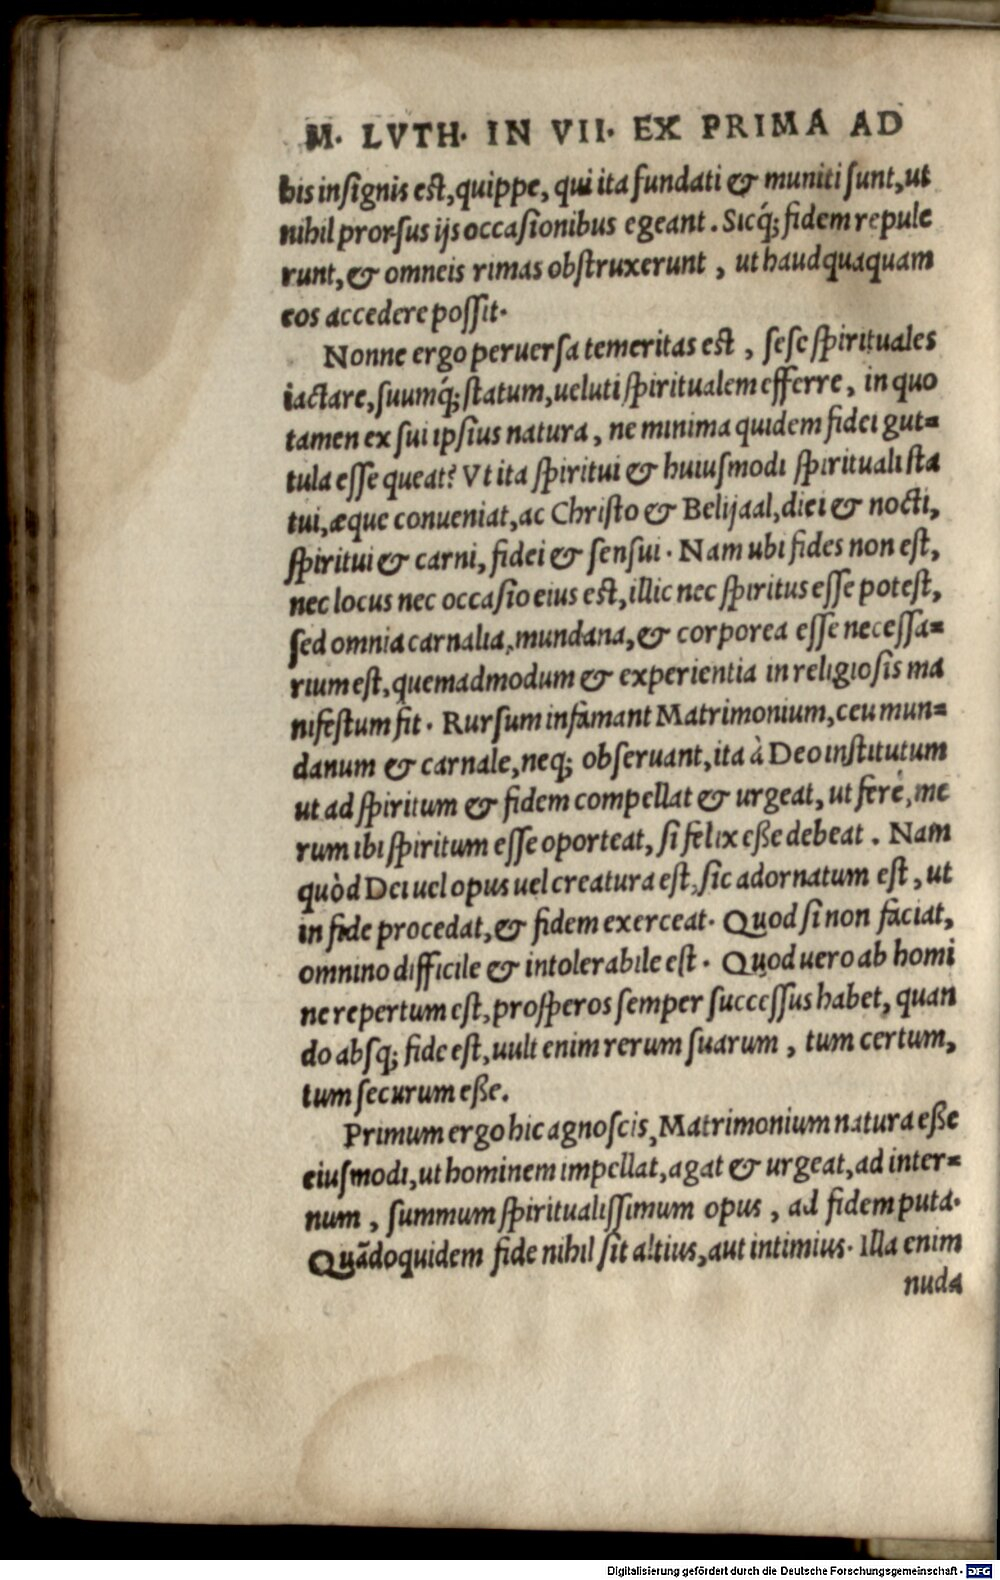 M. LVTH. IN VII. EX PRIMA AD
bis insignis est, quippe, qui ita fundati & muniti sunt, ut
nihil prorsus ijs occasionibus egeant. Sicq́; fidem repule
runt, & omneis rimas obstruxerunt, ut haudquaquam
eos accedere possit.
Nonne ergo peruersa temeritas est, sese spirituales
iactare, suumq́; statum, ueluti spiritualem efferre, in quo
tamen ex sui ipsius natura, ne minima quidem fidei gut=
tula esse queat? Vt ita spiritui & huiusmodi spirituali sta
tui, æque conueniat, ac Christo & Belijaal, diei & nocti,
spiritui & carni, fidei & sensui. Nam ubi fides non est,
nec locus nec occasio eius est, illic nec spiritus esse potest,
sed omnia carnalia, mundana, & corporea esse necessa=
rium est, quemadmodum & experientia in religiosis ma
nifestum fit. Rursum infamant Matrimonium, ceu mun=
danum & carnale, neq; obseruant, ita à Deo institutum
ut ad spiritum & fidem compellat & urgeat, ut ferè, me
rum ibi spiritum esse oporteat, si felix eße debeat. Nam
quòd Dei uel opus uel creatura est, sic adornatum est, ut
in fide procedat, & fidem exerceat. Quod si non faciat,
omnino difficile & intolerabile est. Quod uero ab homi
ne repertum est, prosperos semper successus habet, quan
do absq; fide est, uult enim rerum suarum, tum certum,
tum securum eße.
Primum ergo hic agnoscis, Matrimonium natura eße
eiusmodi, ut hominem impellat, agat & urgeat, ad inter=
num, summum spiritualissimum opus, ad fidem puta.
Quãdoquidem fide nihil sit altius, aut intimius. Illa enim
nuda
Digitalisierung gefördert durch die Deutsche Forschungsgemeinschaft - DFG